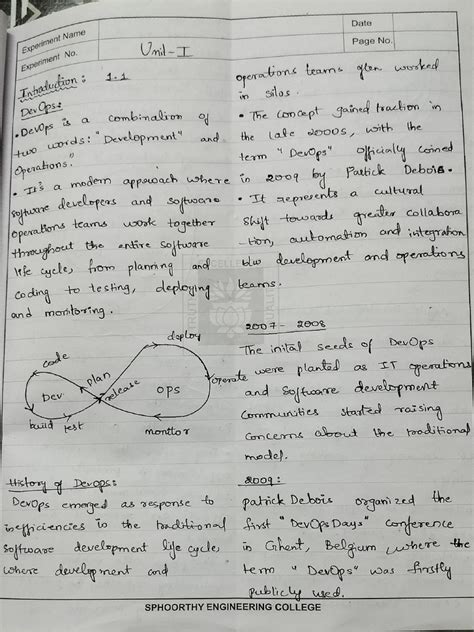 Experiment Name
Experiment No.
Date
Page No.
Unit-I
Introduction : 1.1
DevOps:
• DevOps is a combination of
two words: "Development" and
Operations."
• It's a modern approach where
software developers and software
operations teams work together
throughout the entire software
life cycle, from planning and
coding to testing, deploying
and monitoring.
code
plan
deploy
Dev
release
OPS
operate
build
test
monitor
History of Devops:
DevOps emerged as response to
inefficiencies in the traditional
software development life cycle,
where development and
operations teams often worked
in silos.
• The concept gained traction in
the late 2000s, with the
term "DevOps" officially coined
in 2009 by Patrick Debois.
• It represents a cultural
shift towards greater collabora
-tion, automation and integration
b/w development and operations
teams.
2007 - 2008
The inital seeds of DevOps
were planted as IT operations
and Software development
Communities started raising
concerns about the traditional
model.
2009:
patrick Debois organized the
first "DevOpsDays" conference
in Ghent, Belgium, where the
term "DevOps" was firstly
publicly used.
SPHOORTHY ENGINEERING COLLEGE